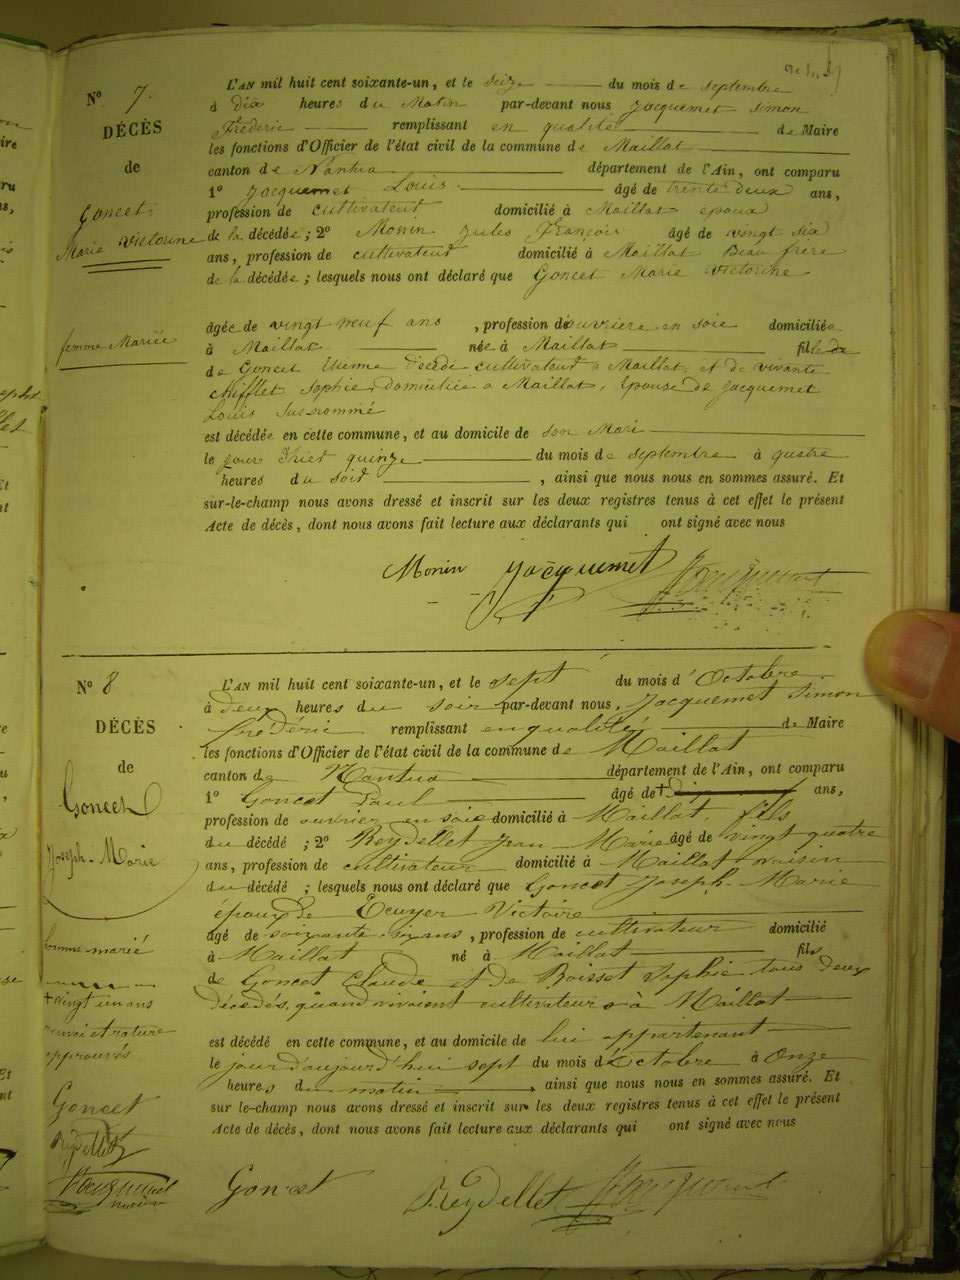 N° 7.
DÉCÈS
de
Goncet
Marie Victorine
femme Mariée
L'AN mil huit cent soixante-un, et le Seize du mois de septembre
à dix heures du Matin par-devant nous Jacquemet Simon
Frédéric remplissant en qualité de Maire
les fonctions d'Officier de l'état civil de la commune de Maillat
canton de Nantua département de l'Ain, ont comparu
1° Jacquemet Louis âgé de trente deux ans,
profession de cultivateur domicilié à Maillat epoux
de la décédée; 2° Monin Jules François âgé de vingt six
ans, profession de cultivateur domicilié à Maillat Beau frère
de la décédée; lesquels nous ont déclaré que Goncet Marie Victorine
âgée de vingt neuf ans, profession d'ouvriere en soie domiciliée
à Maillat née à Maillat fille de
de Goncet Etienne Décédé cultivateur a Maillat, et de vivante
Chifflet Sophie Domiciliée a Maillat, Epouse de Jacquemet
Louis Susnommé
est décédée en cette commune, et au domicile de son Mari
le jour d'hier quinze du mois de septembre à quatre
heures du soir, ainsi que nous nous en sommes assuré. Et
sur-le-champ nous avons dressé et inscrit sur les deux registres tenus à cet effet le présent
Acte de décès, dont nous avons fait lecture aux déclarants qui ont signé avec nous
Monin Jacquemet Jacquemet
N° 8
DÉCÈS
de
Goncet
Joseph-Marie
homme marié
+ vingt un ans
renvoi et rature
approuvés
Goncet
Reydellet
Jacquemet
maire
L'AN mil huit cent soixante-un, et le sept du mois d'Octobre
à deux heures du soir par-devant nous, Jacquemet Simon
Frédéric remplissant en qualité de Maire
les fonctions d'Officier de l'état civil de la commune de Maillat
canton de Nantua département de l'Ain, ont comparu
1° Goncet Paul âgé de + ans,
profession de ouvrier en soie domicilié à Maillat, fils
du décédé; 2° Reydellet Jean-Marie âgé de vingt quatre
ans, profession de cultivateur domicilié à Maillat voisin
du décédé; lesquels nous ont déclaré que Goncet Joseph-Marie
époux de Ecuyer Victoire
âgé de soixante six ans, profession de cultivateur domicilié
à Maillat né à Maillat fils
de Goncet Claude et de Boisset Sophie tous deux
décédés, quand vivaient cultivateurs à Maillat
est décédé en cette commune, et au domicile de lui appartenant
le jour d'aujourd'hui sept du mois d'Octobre à Onze
heures du matin, ainsi que nous nous en sommes assuré. Et
sur le-champ nous avons dressé et inscrit sur les deux registres tenus à cet effet le présent
Acte de décès, dont nous avons fait lecture aux déclarants qui ont signé avec nous
Goncet Reydellet Jacquemet